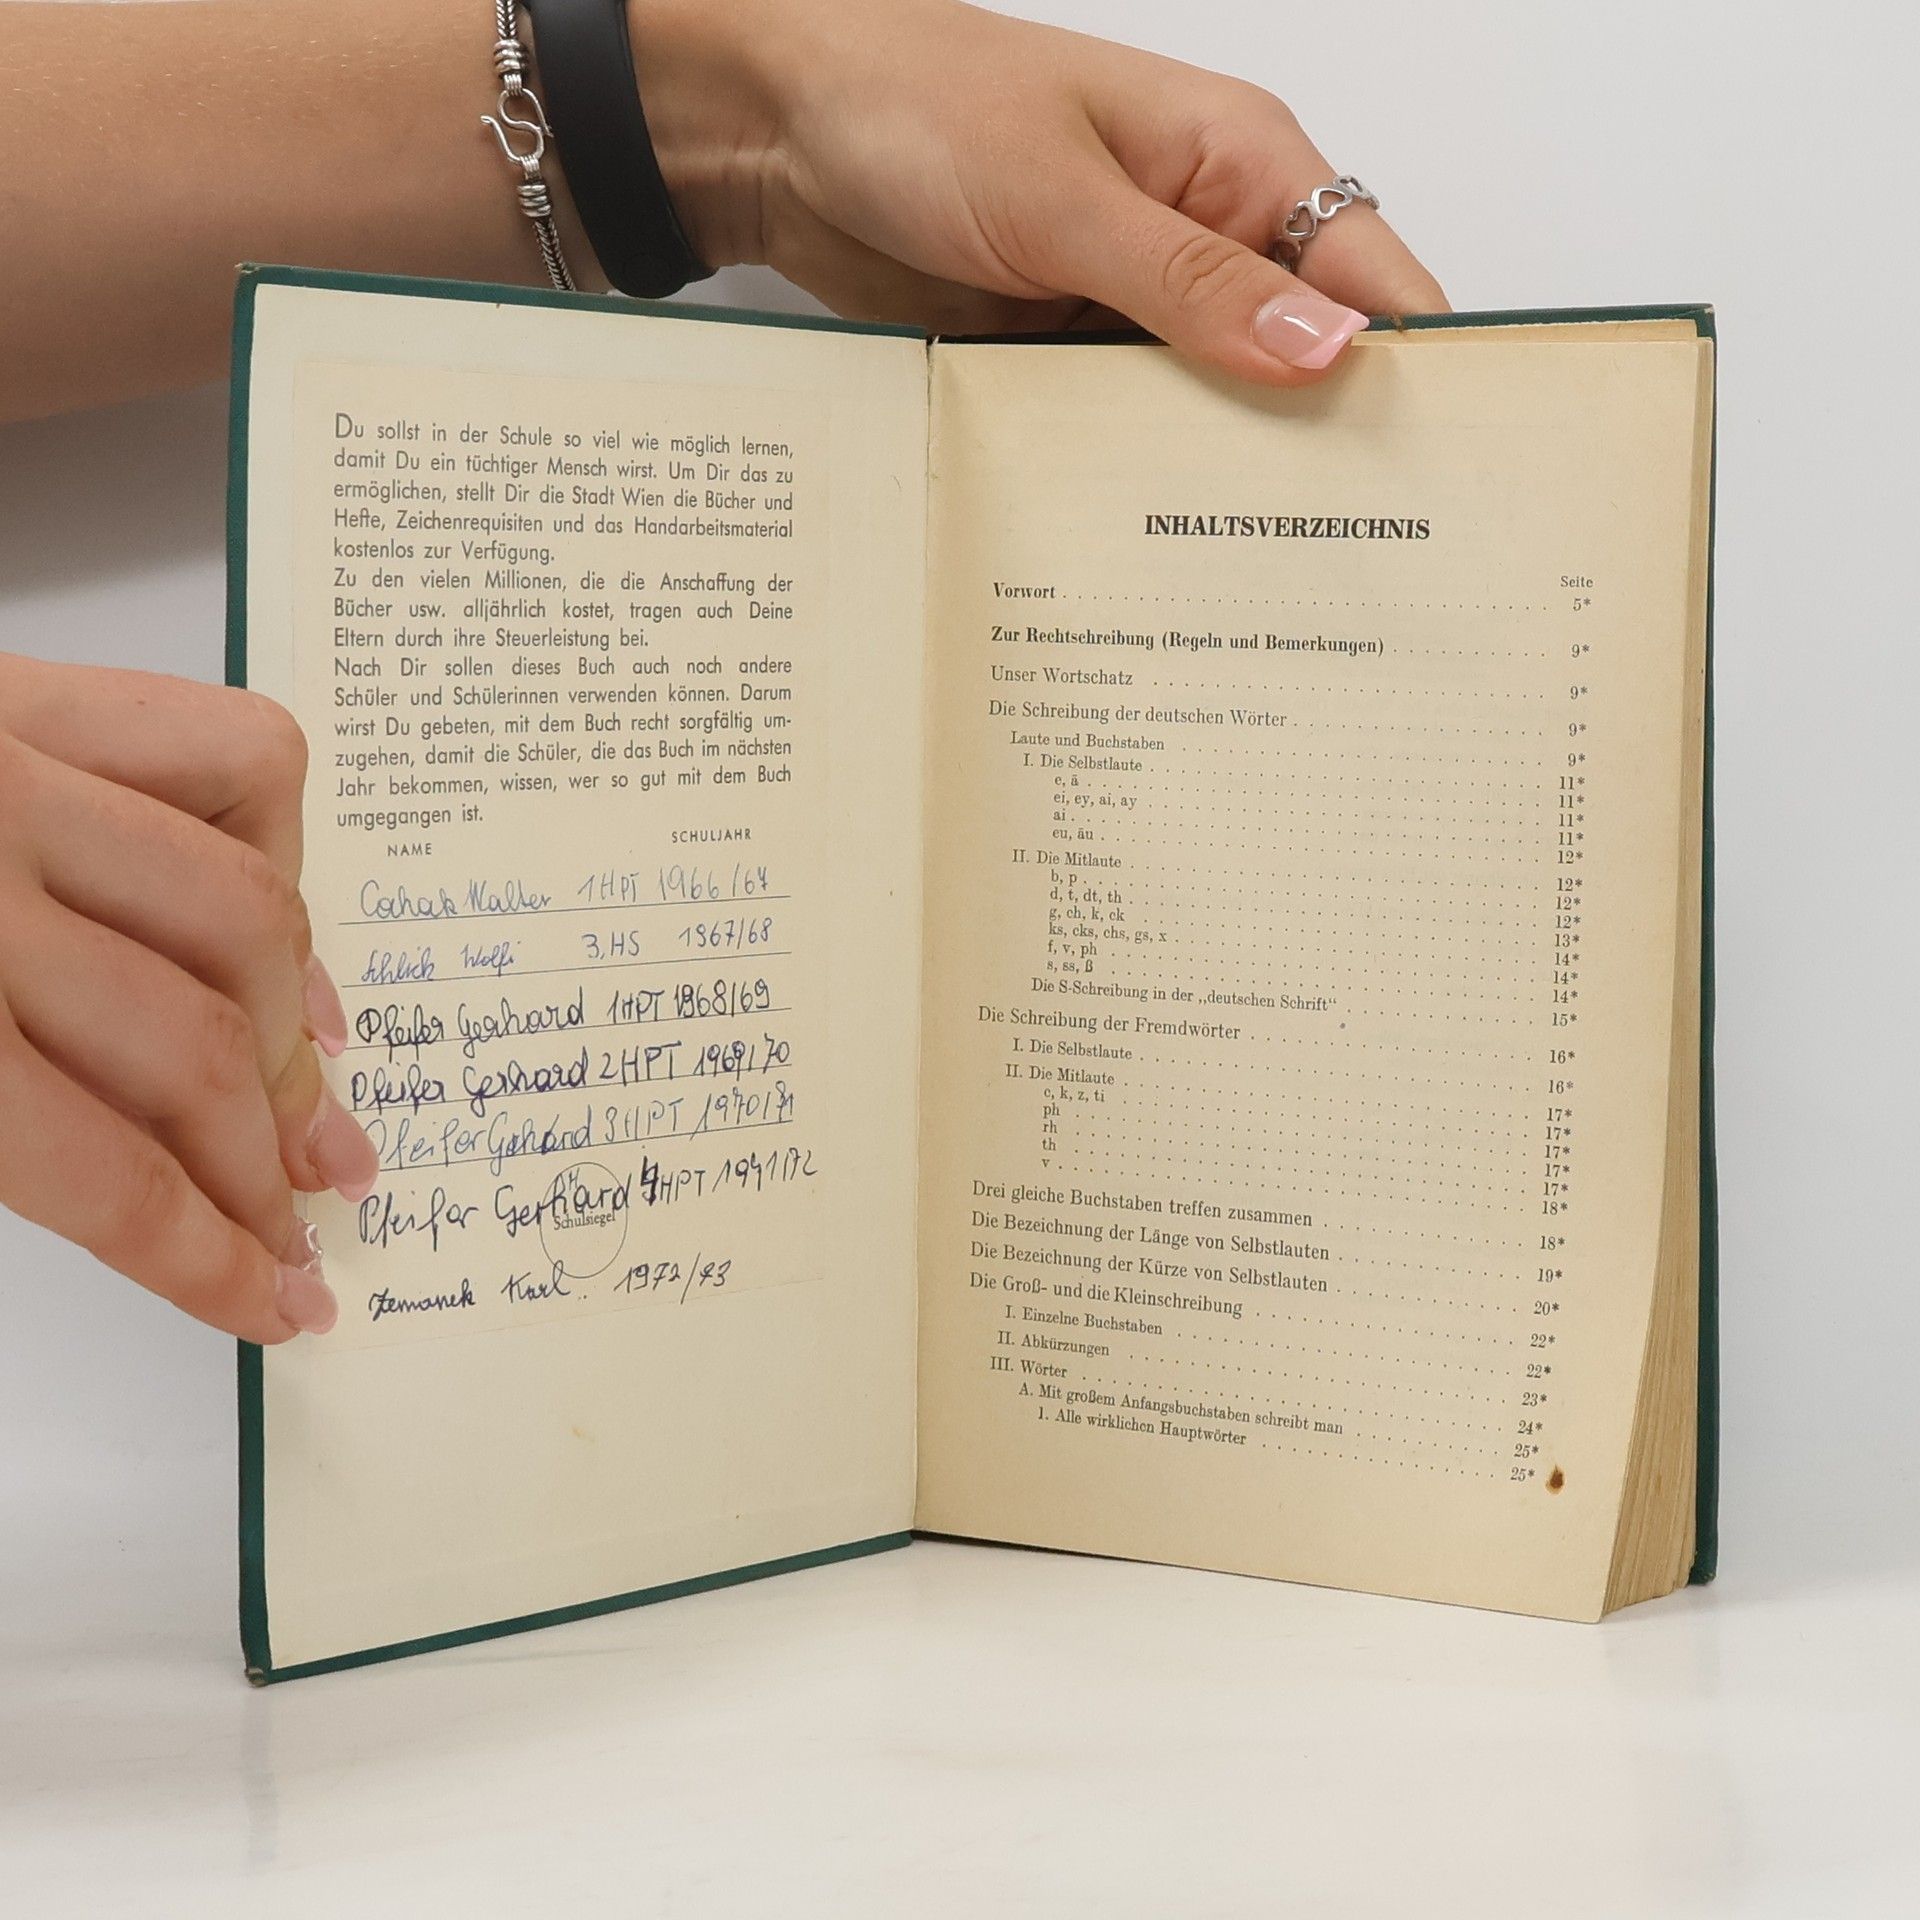 Du sollst in der Schule so viel wie möglich lernen,
damit Du ein tüchtiger Mensch wirst. Um Dir das zu
ermöglichen, stellt Dir die Stadt Wien die Bücher und
Hefte, Zeichenrequisiten und das Handarbeitsmaterial
kostenlos zur Verfügung.
Zu den vielen Millionen, die die Anschaffung der
Bücher usw. alljährlich kostet, tragen auch Deine
Eltern durch ihre Steuerleistung bei.
Nach Dir sollen dieses Buch auch noch andere
Schüler und Schülerinnen verwenden können. Darum
wirst Du gebeten, mit dem Buch recht sorgfältig um-
zugehen, damit die Schüler, die das Buch im nächsten
Jahr bekommen, wissen, wer so gut mit dem Buch
umgegangen ist.
NAME SCHULJAHR
Walter 1HPT 1966/67
Schlick Wolfi 3.HS 1967/68
Pfeifer Gerhard 1HPT 1968/69
Pfeifer Gerhard 2HPT 1969/70
Pfeifer Gerhard 3HPT 1970/71
Pfeifer Gerhard 4HPT 1971/72
Schulsiegel
Zemanek Karl 1972/73
INHALTSVERZEICHNIS
Seite
Vorwort 5*
Zur Rechtschreibung (Regeln und Bemerkungen) 9*
Unser Wortschatz 9*
Die Schreibung der deutschen Wörter 9*
Laute und Buchstaben 9*
I. Die Selbstlaute 11*
e, ä 11*
ei, ey, ai, ay 11*
ai 11*
eu, äu 12*
II. Die Mitlaute 12*
b, p 12*
d, t, dt, th 12*
g, ch, k, ck 13*
ks, cks, chs, gs, x 14*
f, v, ph 14*
s, ss, ß 14*
Die S-Schreibung in der „deutschen Schrift“ 15*
Die Schreibung der Fremdwörter 16*
I. Die Selbstlaute 16*
II. Die Mitlaute 17*
c, k, z, ti 17*
ph 17*
rh 17*
th 17*
v 18*
Drei gleiche Buchstaben treffen zusammen 18*
Die Bezeichnung der Länge von Selbstlauten 19*
Die Bezeichnung der Kürze von Selbstlauten 20*
Die Groß- und die Kleinschreibung 22*
I. Einzelne Buchstaben 22*
II. Abkürzungen 23*
III. Wörter 24*
A. Mit großem Anfangsbuchstaben schreibt man 25*
1. Alle wirklichen Hauptwörter 25*